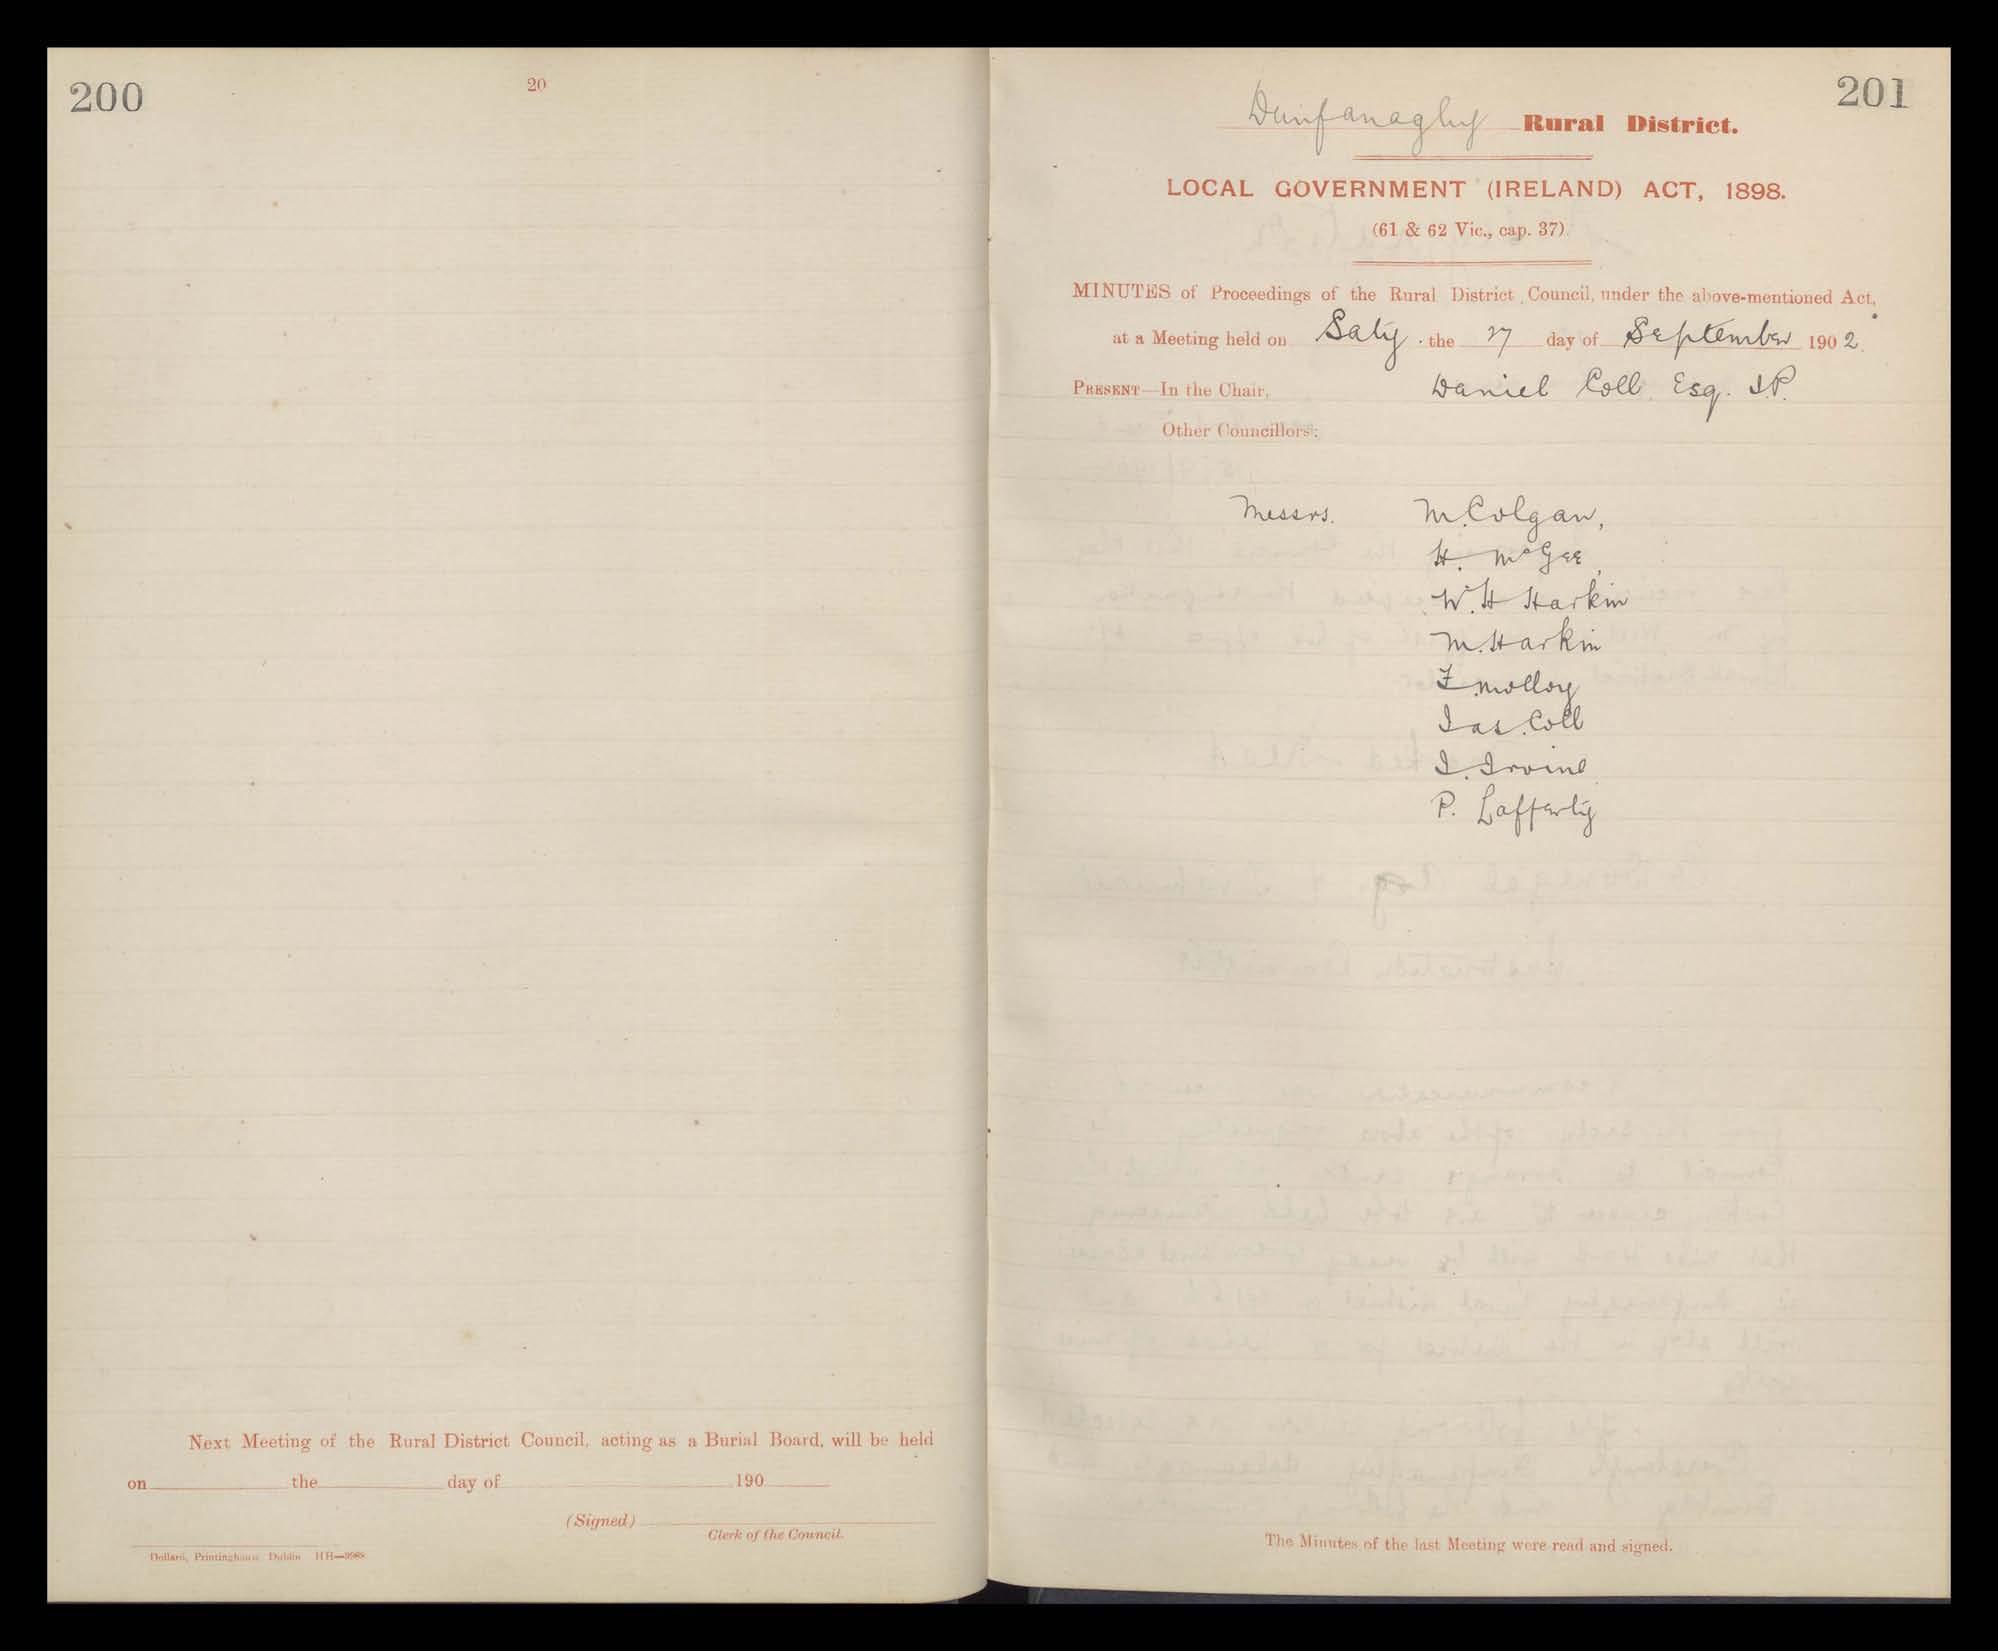 200
20
Next Meeting of the Rural District Council, acting as a Burial Board, will be held
on the day of 190
(Signed)
Clerk of the Council.
Dollard, Printinghouse, Dublin HH—9968
201
Dunfanaghy Rural District.
LOCAL GOVERNMENT (IRELAND) ACT, 1898.
(61 & 62 Vic., cap. 37).
MINUTES of Proceedings of the Rural District Council, under the above-mentioned Act,
at a Meeting held on Saty the 27 day of September 1902.
PRESENT—In the Chair, Daniel Coll Esq. J.P.
Other Councillors:
Messrs. M. Colgan,
H. McGee,
W. H Harkin
M. Harkin
F. Molloy
Jas. Coll
J. Irvine
P. Lafferty
The Minutes of the last Meeting were read and signed.